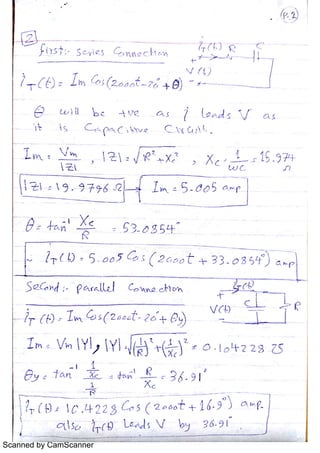 (P.2)
2
first:- series Connection
i_T(t) R C
+ V(t) -
i_T(t) = Im Cos(2000t - 20° + θ)
θ will be +ve as i leads V as
it is Capacitive Circuit.
Im = Vm/|Z| , |Z| = √(R² + Xc²) , Xc = 1/ωC = 15.974 Ω
|Z| = 19.9796 Ω → Im = 5.005 amp
θ = tan⁻¹ Xc/R = 53.0854°
~ i_T(t) = 5.005 Cos(2000t + 33.0854°) amp
Second:- parallel Connection
i_T(t)
+ V(t) - C R
i_T(t) = Im Cos(2000t - 20° + θy)
Im = Vm |Y| , |Y| = √((1/R)² + (1/Xc)²) = 0.1042275
θy = tan⁻¹ (1/Xc)/(1/R) = tan⁻¹ R/Xc = 36.91°
i_T(t) = 10.4228 Cos(2000t + 16.9°) amp.
also i_T(t) Leads V by 36.91°
Scanned by CamScanner